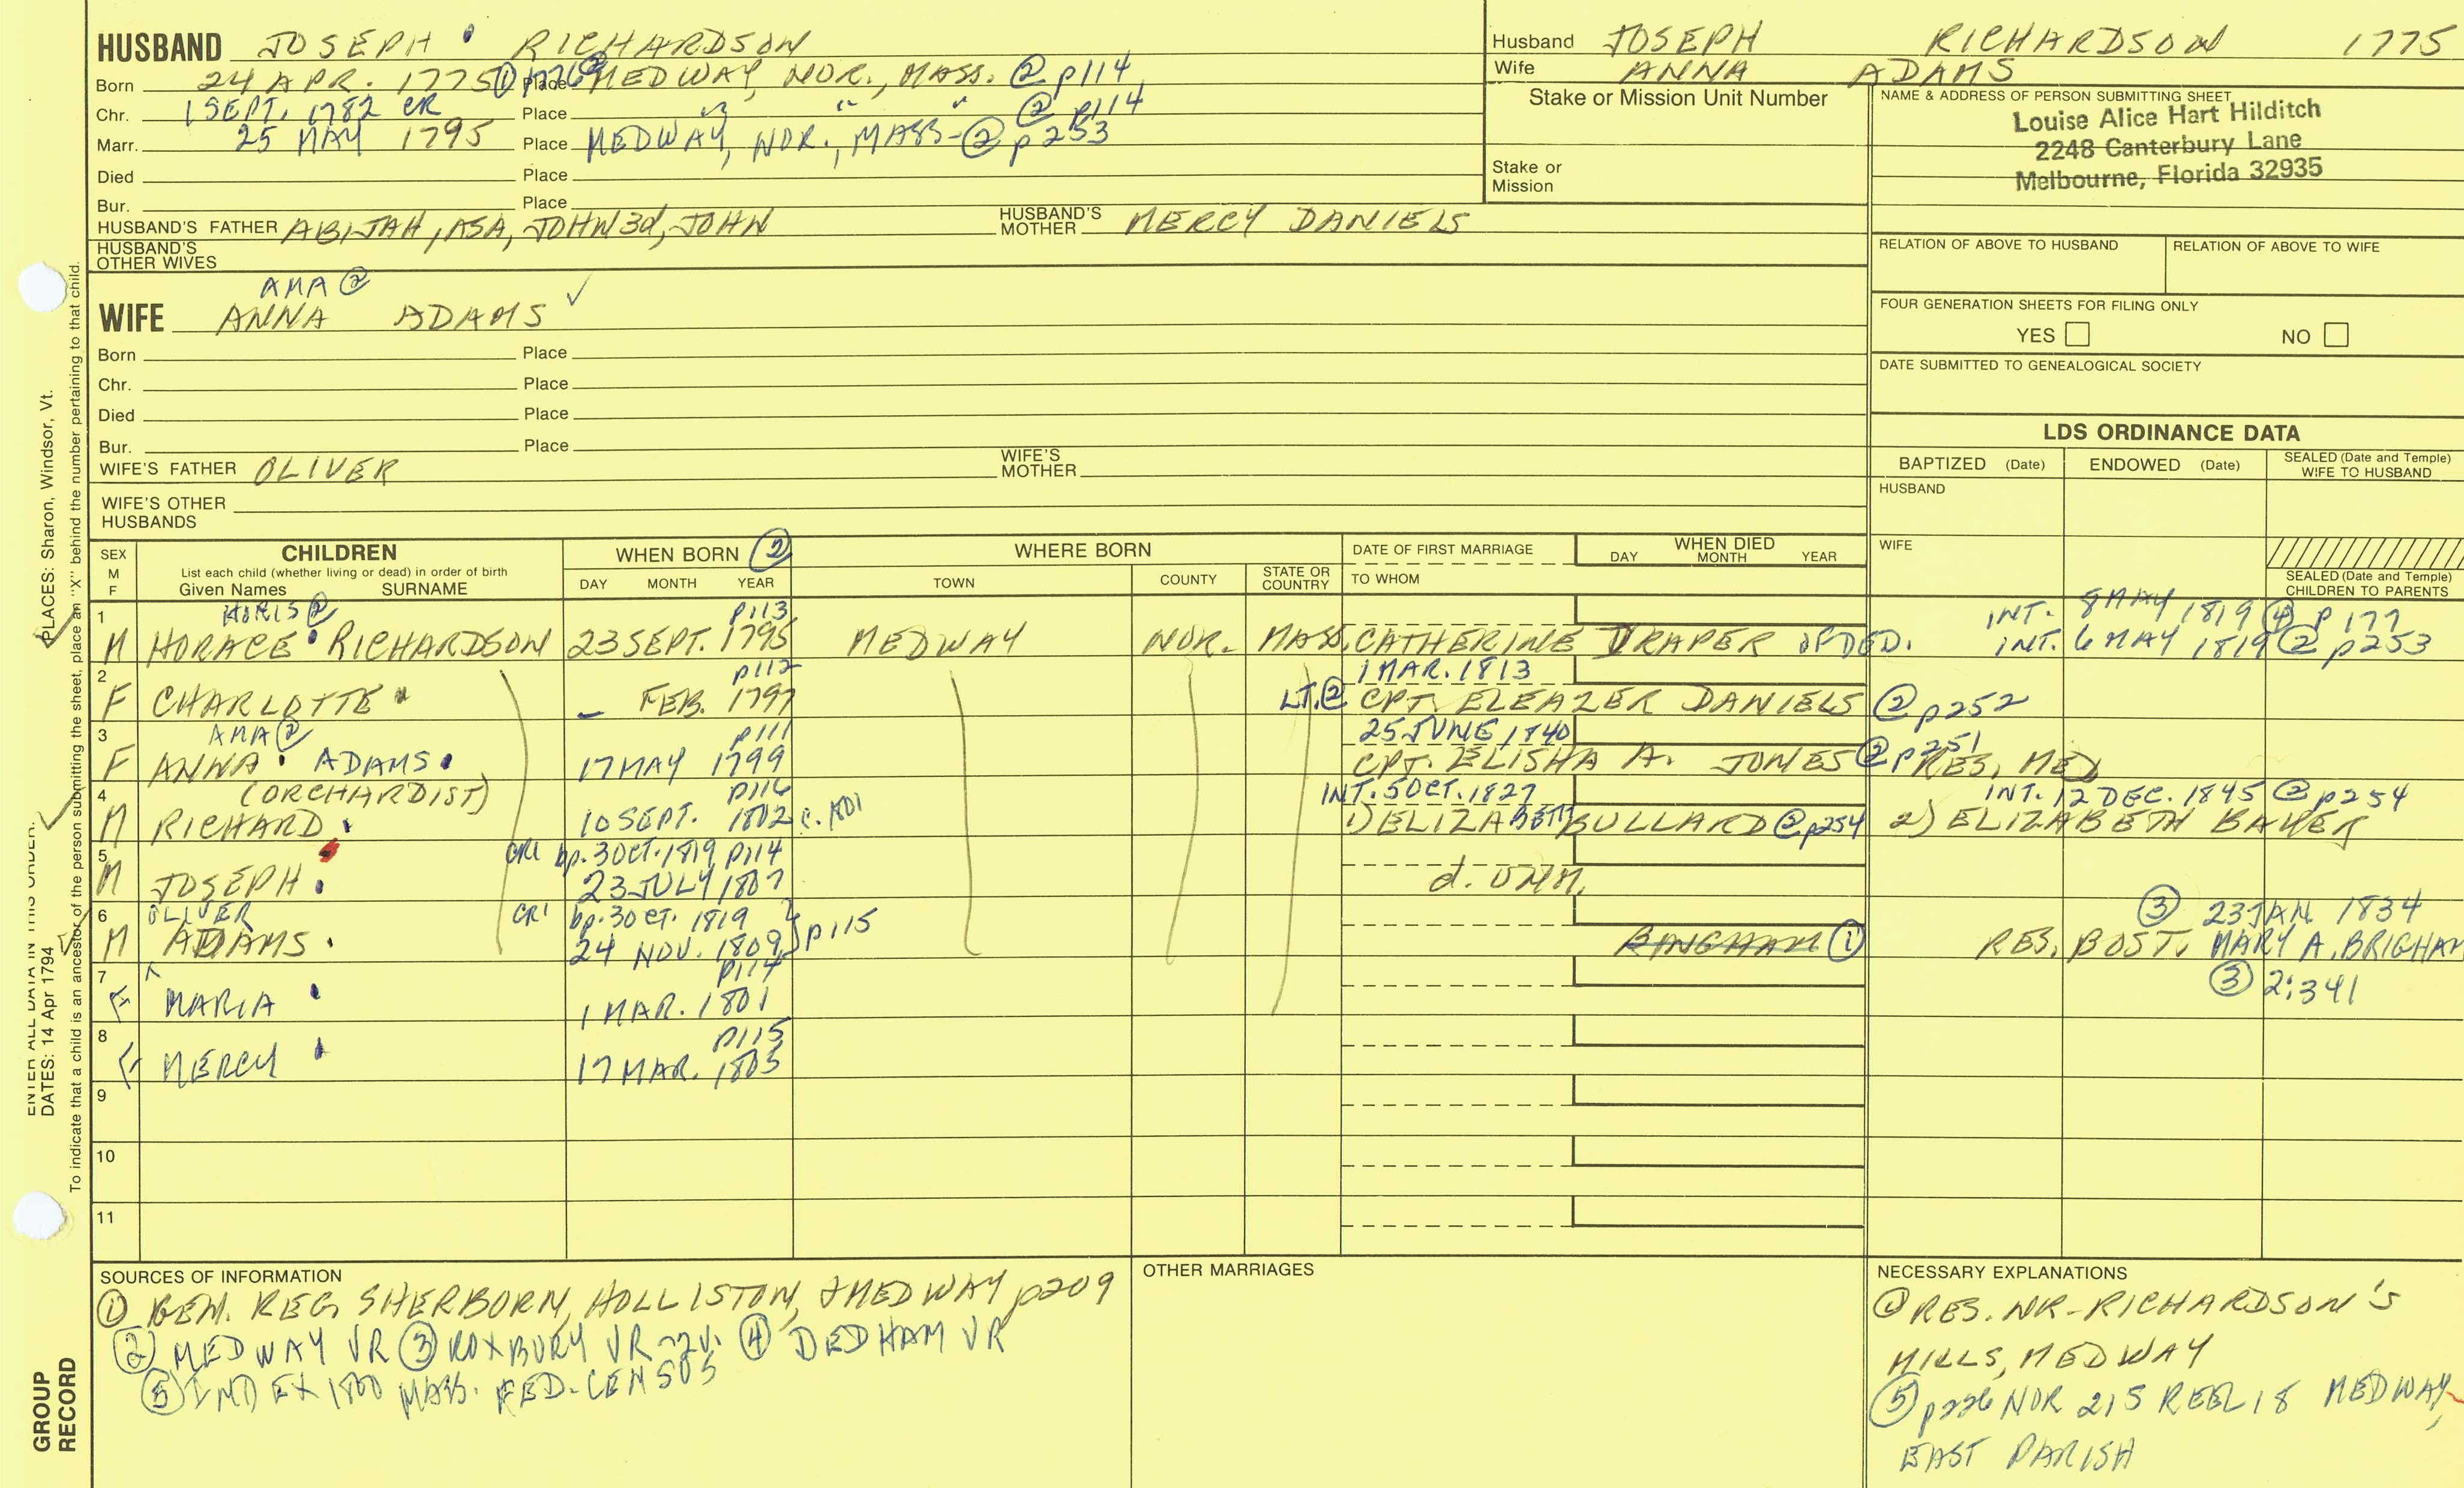 HUSBAND JOSEPH RICHARDSON
Born 24 APR. 1775 ① 1776 ② Place MEDWAY, NOR., MASS. ② p114
Chr. 1 SEPT. 1782 CR Place " " " ② p114
Marr. 25 MAY 1795 Place MEDWAY, NOR., MASS- ② p253
Died Place
Bur. Place
HUSBAND'S FATHER ABIJAH, ASA, JOHN 3d, JOHN HUSBAND'S MOTHER MERCY DANIELS
HUSBAND'S OTHER WIVES
AMA ②
WIFE ANNA ADAMS ✓
Born Place
Chr. Place
Died Place
Bur. Place
WIFE'S FATHER OLIVER WIFE'S MOTHER
WIFE'S OTHER HUSBANDS
Husband JOSEPH RICHARDSON 1775
Wife ANNA ADAMS
Stake or Mission Unit Number
Stake or Mission
NAME & ADDRESS OF PERSON SUBMITTING SHEET
Louise Alice Hart Hilditch
2248 Canterbury Lane
Melbourne, Florida 32935
RELATION OF ABOVE TO HUSBAND RELATION OF ABOVE TO WIFE
FOUR GENERATION SHEETS FOR FILING ONLY
YES NO
DATE SUBMITTED TO GENEALOGICAL SOCIETY
LDS ORDINANCE DATA
BAPTIZED (Date) ENDOWED (Date) SEALED (Date and Temple) WIFE TO HUSBAND
HUSBAND
WIFE
SEALED (Date and Temple) CHILDREN TO PARENTS
SEX M F
CHILDREN
List each child (whether living or dead) in order of birth
Given Names SURNAME
WHEN BORN ②
DAY MONTH YEAR
WHERE BORN
TOWN COUNTY STATE OR COUNTRY
DATE OF FIRST MARRIAGE
TO WHOM
WHEN DIED
DAY MONTH YEAR
1 HORIS ② p113 INT. 8 MAY 1819 ④ p177
M HORACE RICHARDSON 23 SEPT. 1795 MEDWAY NOR. MASS. CATHERINE DRAPER OF DED. INT. 6 MAY 1819 ② p253
2 p112 1 MAR. 1813
F CHARLOTTE _ FEB. 1797 LT. ② CPT. ELEAZER DANIELS ② p252
3 AMA ② p111 25 JUNE 1840
F ANNA ADAMS 17 MAY 1799 CPT. ELISHA A. JONES ② p251 RES. MED
4 (ORCHARDIST) p116 INT. 5 OCT. 1827 INT. 12 DEC. 1845 ② p254
M RICHARD 10 SEPT. 1802 1) ELIZABETH BULLARD ② p254 2) ELIZABETH BAKER
5 CR1 bp. 3 OCT. 1819 p114
M JOSEPH 23 JULY 1807 d. UNM.
6 OLIVER CR1 bp. 3 OCT. 1819 ③ 23 JAN. 1834
M ADAMS 24 NOV. 1809 p115 BINGHAM ① RES. BOST. MARY A. BRIGHAM
7 p114 ③ 2:341
F MARIA 1 MAR. 1801
8 p115
F MERCY 17 MAR. 1805
9
10
11
SOURCES OF INFORMATION
① GEN. REG. SHERBORN, HOLLISTON, & MEDWAY p209
② MEDWAY VR ③ ROXBURY VR -2V. ④ DEDHAM VR
⑤ INDEX 1800 MASS. FED. CENSUS
OTHER MARRIAGES
NECESSARY EXPLANATIONS
① RES. NR-RICHARDSON'S
MILLS, MEDWAY
⑤ p226 NOR 215 REEL 18 MEDWAY,
EAST PARISH
PLACES: Sharon, Windsor, Vt.
ENTER ALL DATA IN THIS ORDER:
DATES: 14 Apr 1794
To indicate that a child is an ancestor of the person submitting the sheet, place an "X" behind the number pertaining to that child.
GROUP
RECORD